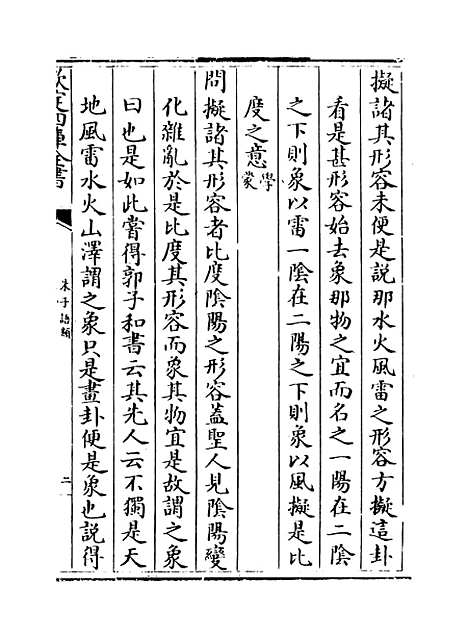 擬諸其形容未便是説那水火風雷之形容方擬這卦
看是甚形容始去象那物之宜而名之一陽在二隂
之下則象以雷一陰在二陽之下則象以風擬是比
度之意學蒙
問擬諸其形容者比度陰陽之形容蓋聖人見陰陽變
化雜亂於是比度其形容而象其物宜是故謂之象
曰也是如此嘗得郭子和書云其先人云不獨是天
地風雷水火山澤謂之象只是畫卦便是象也説得
欽定四庫全書
朱子語類
二